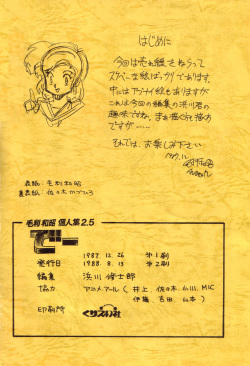 はじめに
今回は売れ線をねらって
スケベーな絵ばっかりであります。
中にはアブナイ絵もありますが
これは今回の編集の浜川君の
趣味ですね。まあ描くて描め
ですが…
それでは、お楽しみ下さい
表紙：毛利和昭
裏表紙：佐々木かつひろ
毛利和昭 個人集2.5
でー
発行日 1987. 12. 26 第1刷
1988. 8. 13 第2刷
編集 浜川修士郎
協力 アニメアール（井上、佐々木、小川、MIC
伊藤 吉田 山本）
印刷所 くりえい社